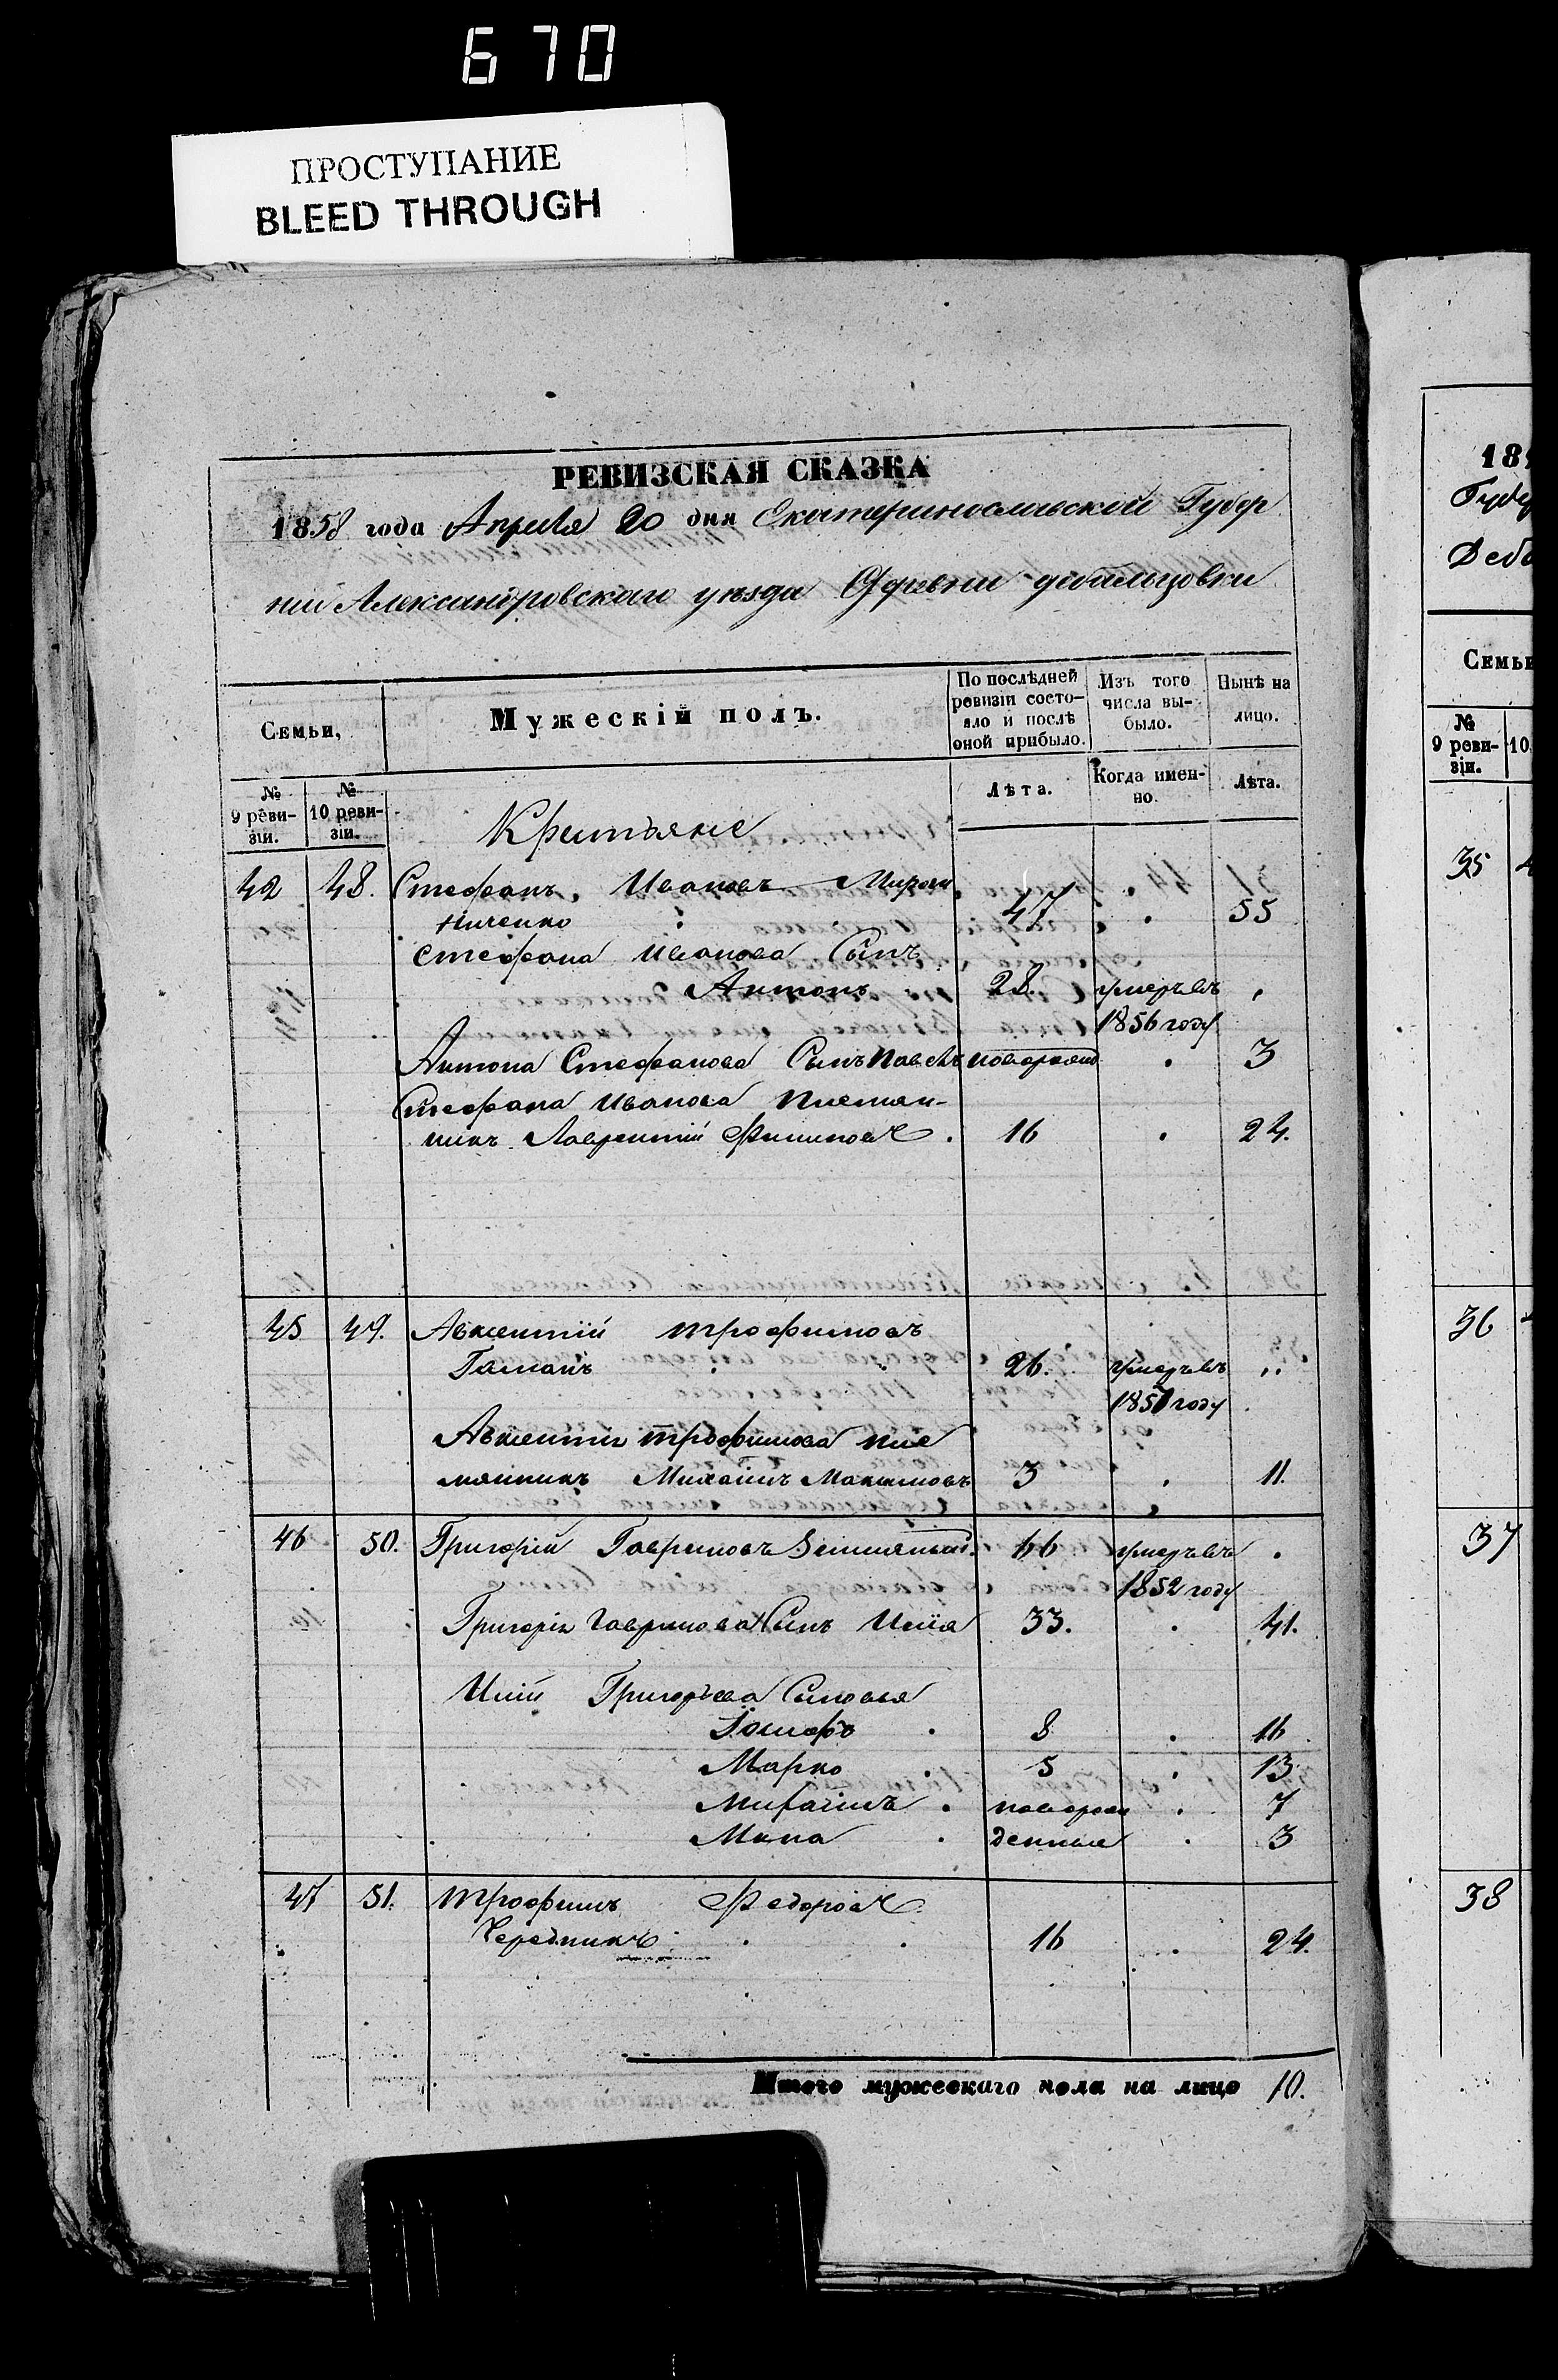 670
ПРОСТУПАНИЕ
BLEED THROUGH
РЕВИЗСКАЯ СКАЗКА
1858 года Апреля 20 дня Екатеринославской Губер
нии Александровского уезда деревни дебальцовки
Семьи,
Мужескій полъ.
По послѣдней ревизіи состо-
яло и послѣ
оной прибыло.
Изъ того
числа вы-
было.
Нынѣ на
лицо.
№
9 реви-
зіи.
№
10 реви-
зіи.
Лѣта.
Когда имен-
но.
Лѣта.
Крестьяне
42 48. Стефанъ Ивановъ Мирош
ниченко 47 55
Стефана Иванова Сынъ
Антонъ 28. умеръ въ
1856 году
Антона Стефанова Сынъ Павелъ новорожд 3
Стефана Иванова племян-
никъ Лаврентий Филиповъ 16 24.
45 49. Авксентий трофимовъ
Гаманъ 26. умеръ въ
1857 году
Авксентия трофимова пле
мянникъ Михаилъ Максимовъ 3 11.
46 50. Григорий Гавриловъ 66 умеръ въ
1852 году
Григория Гаврилова Сынъ Илия 33. 41.
Илии Григорьева Сыновья
Иосифъ 8 16
Марко 5 13
Михаилъ новорож 7
денные 3
47 51. трофимъ Федоровъ
Чередникъ 16 24.
Итого мужескаго пола на лицо 10.
181
Губер
Деба
Семьи
№
9 реви-
зіи.
10
35
36
37
38